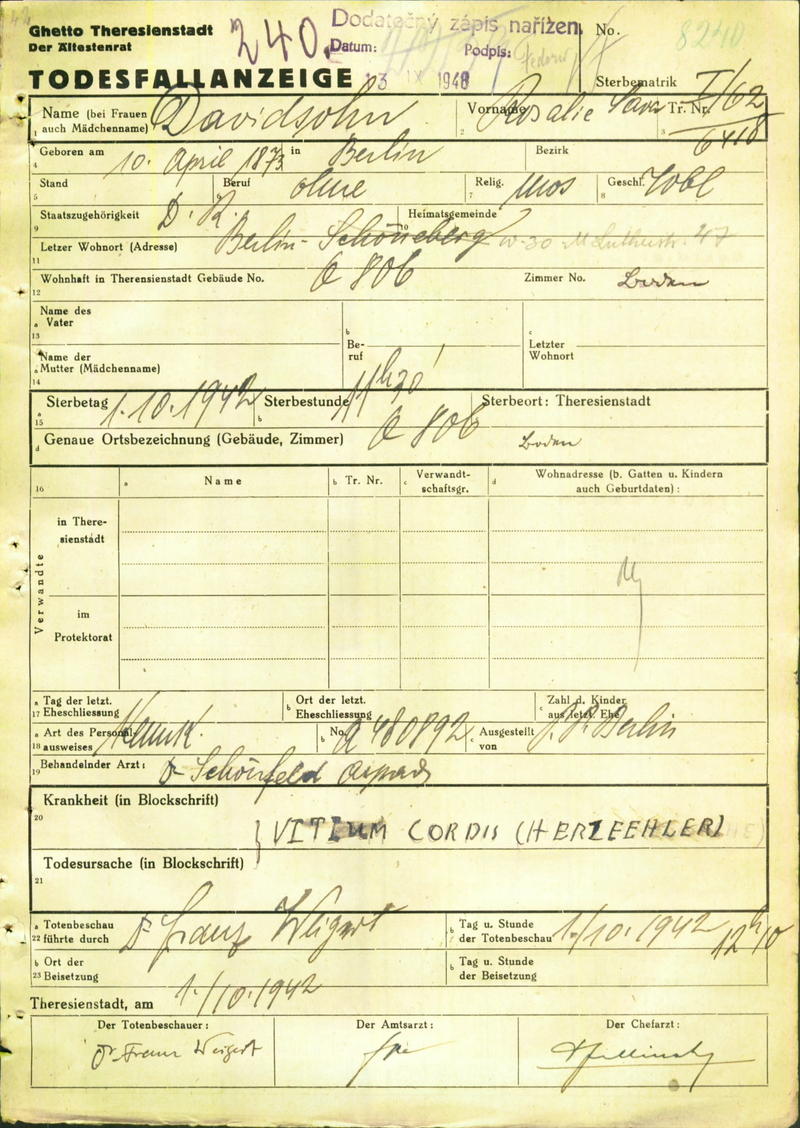 Ghetto Theresienstadt
Der Ältestenrat
TODESFALLANZEIGE
240.
Dodatečný zápis nařízen.
Datum: Podpis:
3 IX 1948
No. 8240
Sterbematrik
Name (bei Frauen auch Mädchenname) Davidsohn
Vorname Rosalie Sara
Tr. Nr. I/62
6418
Geboren am 10. April 1873 in Berlin Bezirk
Stand Beruf ohne Relig. mos Geschl. weibl
Staatszugehörigkeit D. R. Heimatsgemeinde
Letzer Wohnort (Adresse) Berlin-Schöneberg W-30 M Lutherstr. 47
Wohnhaft in Theresienstadt Gebäude No. Q 806 Zimmer No. Boden
Name des Vater
Beruf
Letzter Wohnort
Name der Mutter (Mädchenname)
Sterbetag 1.10.1942 Sterbestunde 11h30' Sterbeort: Theresienstadt
Genaue Ortsbezeichnung (Gebäude, Zimmer) Q 806 Boden
Name Tr. Nr. Verwandtschaftsgr. Wohnadresse (b. Gatten u. Kindern auch Geburtdaten):
Verwandte
in Theresienstadt
im Protektorat
Tag der letzt. Eheschliessung
Ort der letzt. Eheschliessung
Zahl d. Kinder aus letzt. Ehe
Art des Personalausweises Kennk. No. A 480892 Ausgestellt von P. P. Berlin
Behandelnder Arzt: Dr Schönfeld
Krankheit (in Blockschrift)
VITIUM CORDIS (HERZFEHLER)
Todesursache (in Blockschrift)
Totenbeschau führte durch Dr Franz Weigert
Tag u. Stunde der Totenbeschau 1./10.1942 12h10
Ort der Beisetzung
Tag u. Stunde der Beisetzung
Theresienstadt, am 1./10.1942
Der Totenbeschauer: Der Amtsarzt: Der Chefarzt:
Dr. Franz Weigert